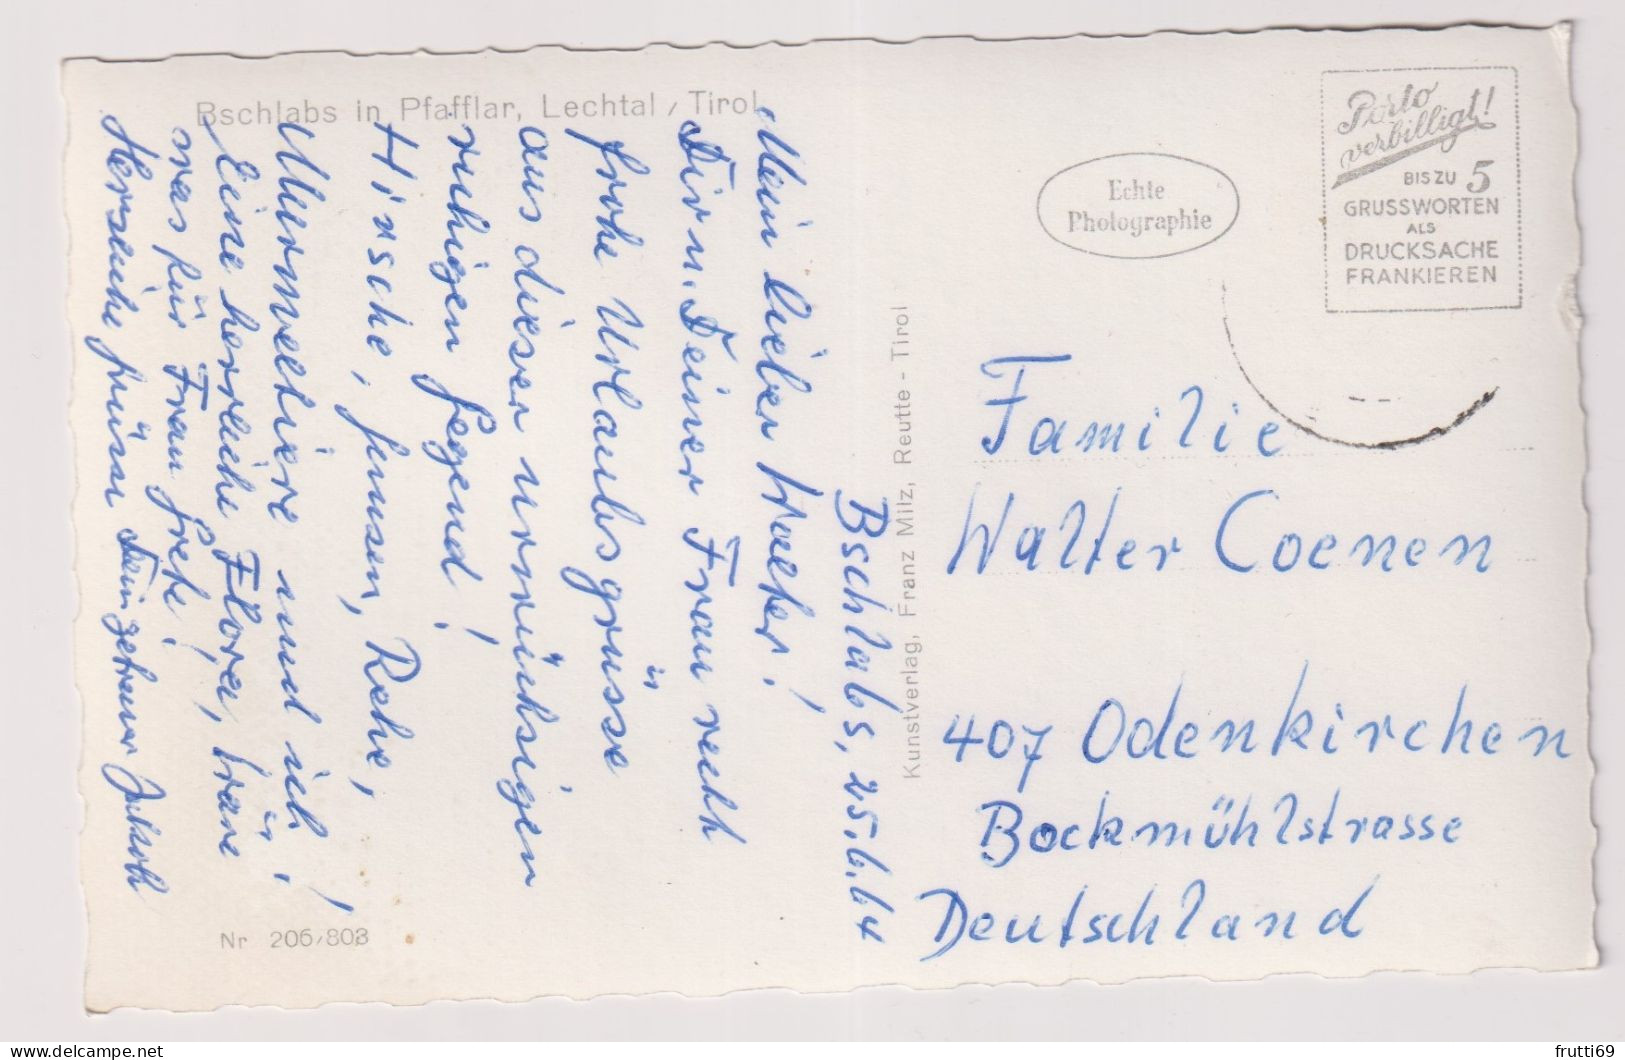 Bschlabs in Pfafflar, Lechtal / Tirol
Bschlabs, 25.6.64
Mein lieber Walter!
Dir u. Deiner Frau recht
frohe Urlaubsgrüsse
aus dieser urwüchsigen
ruhigen Gegend!
Hirsche, Gemsen, Rehe,
Murmeltiere und ich!
Eine herrliche Flora, wäre
was für Frau Grete!
Herzliche Grüsse Dein getreuer
Nr 206/803
Kunstverlag, Franz Milz, Reutte - Tirol
Echte
Photographie
Porto
verbilligt!
BIS ZU 5
GRUSSWORTEN
ALS
DRUCKSACHE
FRANKIEREN
Familie
Walter Coenen
407 Odenkirchen
Bockmühlstrasse
Deutschland
frutti69